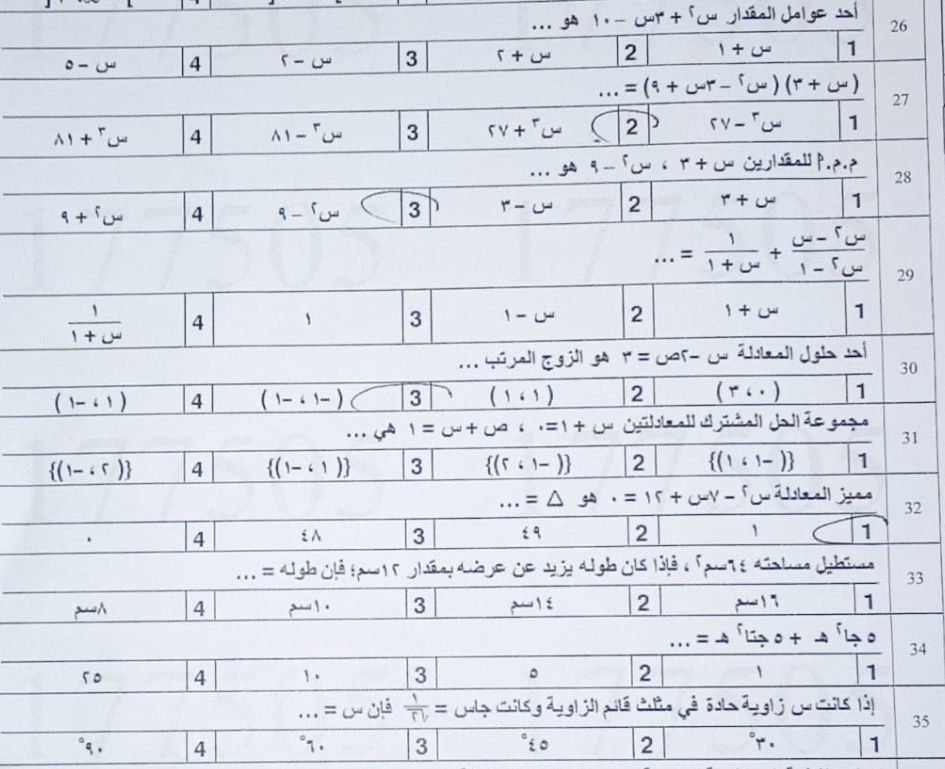 26 أحد عوامل المقدار س² + ٣س - ١٠ هو ...
1 س + ١ 2 س + ٢ 3 س - ٢ 4 س - ٥
27 (س + ٣) (س² - ٣س + ٩) = ...
1 س³ - ٢٧ 2 س³ + ٢٧ 3 س³ - ٨١ 4 س³ + ٨١
28 م.م.أ للمقدارين س + ٣ ، س² - ٩ هو ...
1 س + ٣ 2 س - ٣ 3 س² - ٩ 4 س² + ٩
29 (س² - س)/(س² - ١) + ١/(س + ١) = ...
1 س + ١ 2 س - ١ 3 ١ 4 ١/(س + ١)
30 أحد حلول المعادلة س - ٢ص = ٣ هو الزوج المرتب ...
1 (٠ ، ٣) 2 (١ ، ١) 3 (-١ ، -١) 4 (١ ، -١)
31 مجموعة الحل المشترك للمعادلتين س + ١ = ٠ ، ص + س = ١ هي ...
1 {(-١ ، ١)} 2 {(-١ ، ٢)} 3 {(١ ، -١)} 4 {(٢ ، -١)}
32 مميز المعادلة س² - ٧س + ١٢ = ٠ هو △ = ...
1 ١ 2 ٤٩ 3 ٤٨ 4 ٠
33 مستطيل مساحته ٦٤سم² ، فإذا كان طوله يزيد عن عرضه بمقدار ١٢سم؛ فإن طوله = ...
1 ١٦سم 2 ١٤سم 3 ١٠سم 4 ٨سم
34 ٥ جا² هـ + ٥ جتا² هـ = ...
1 ١ 2 ٥ 3 ١٠ 4 ٢٥
35 إذا كانت س زاوية حادة في مثلث قائم الزاوية وكانت جاس = ١/√٢ فإن س = ...
1 ٣٠° 2 ٤٥° 3 ٦٠° 4 ٩٠°